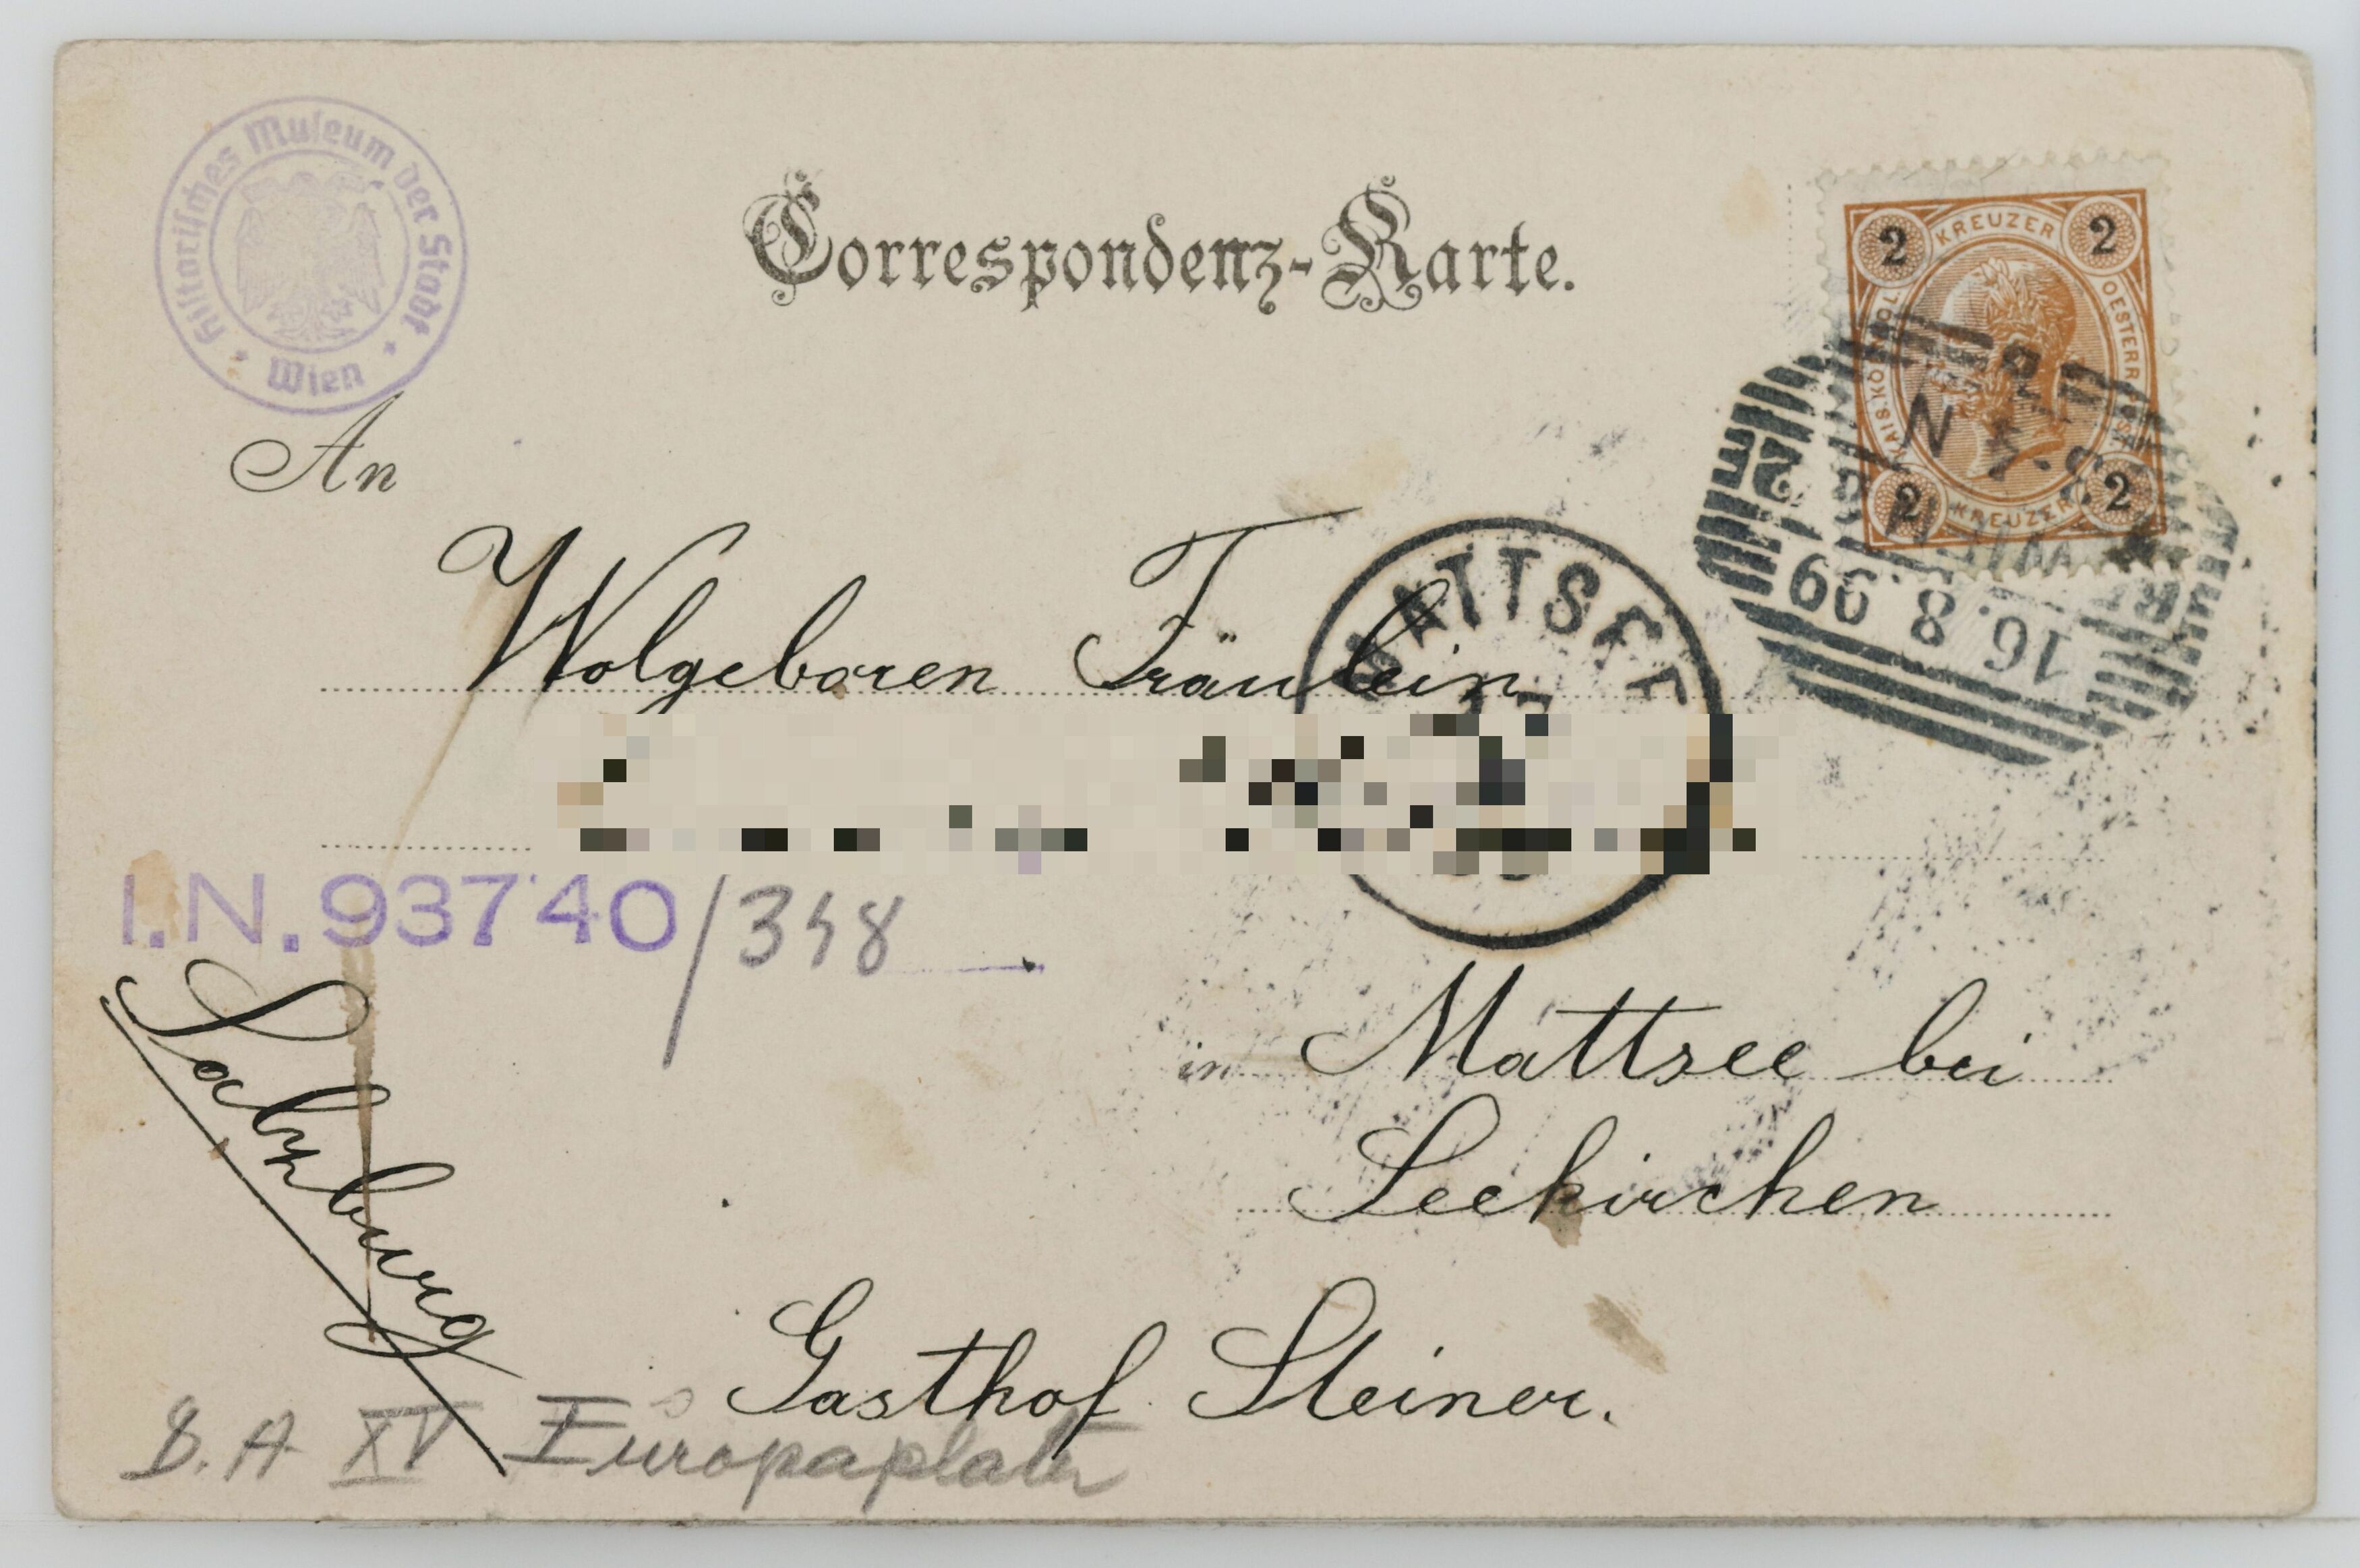 Historisches Museum der Stadt
Wien
Correspondenz-Karte.
2 KREUZER 2
2 KREUZER 2
16.8.99
An
Wolgeboren Fräulein
MATTSEE
I.N. 93740/348
in Mattsee bei
Seekirchen
Salzburg
Gasthof Steiner.
B.A XV Europaplatz